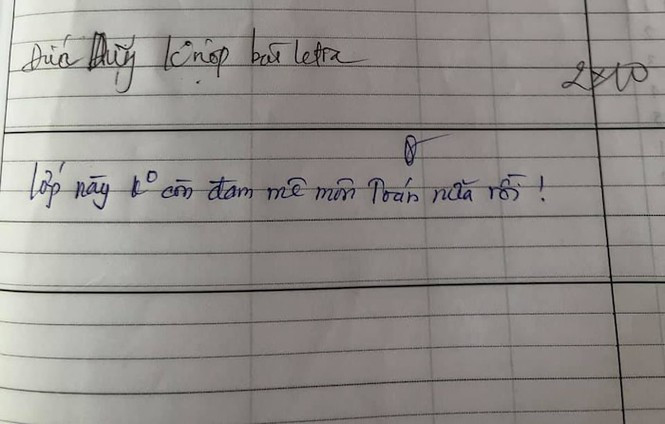 Duy k° nộp bài ktra
2x10
lớp này k° còn đam mê môn Toán nữa rồi !